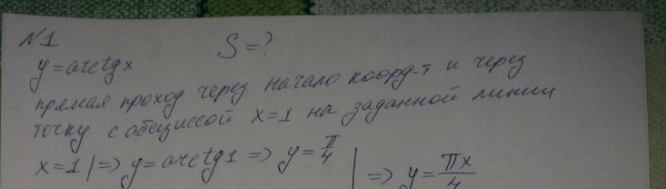 N1
S = ?
y = arctgx
прямая проход через начало коорд-т и через
точку с абсциссой x=1 на заданной линии
x=1 | => y = arctg1 => y = π/4 | => y = πx/4